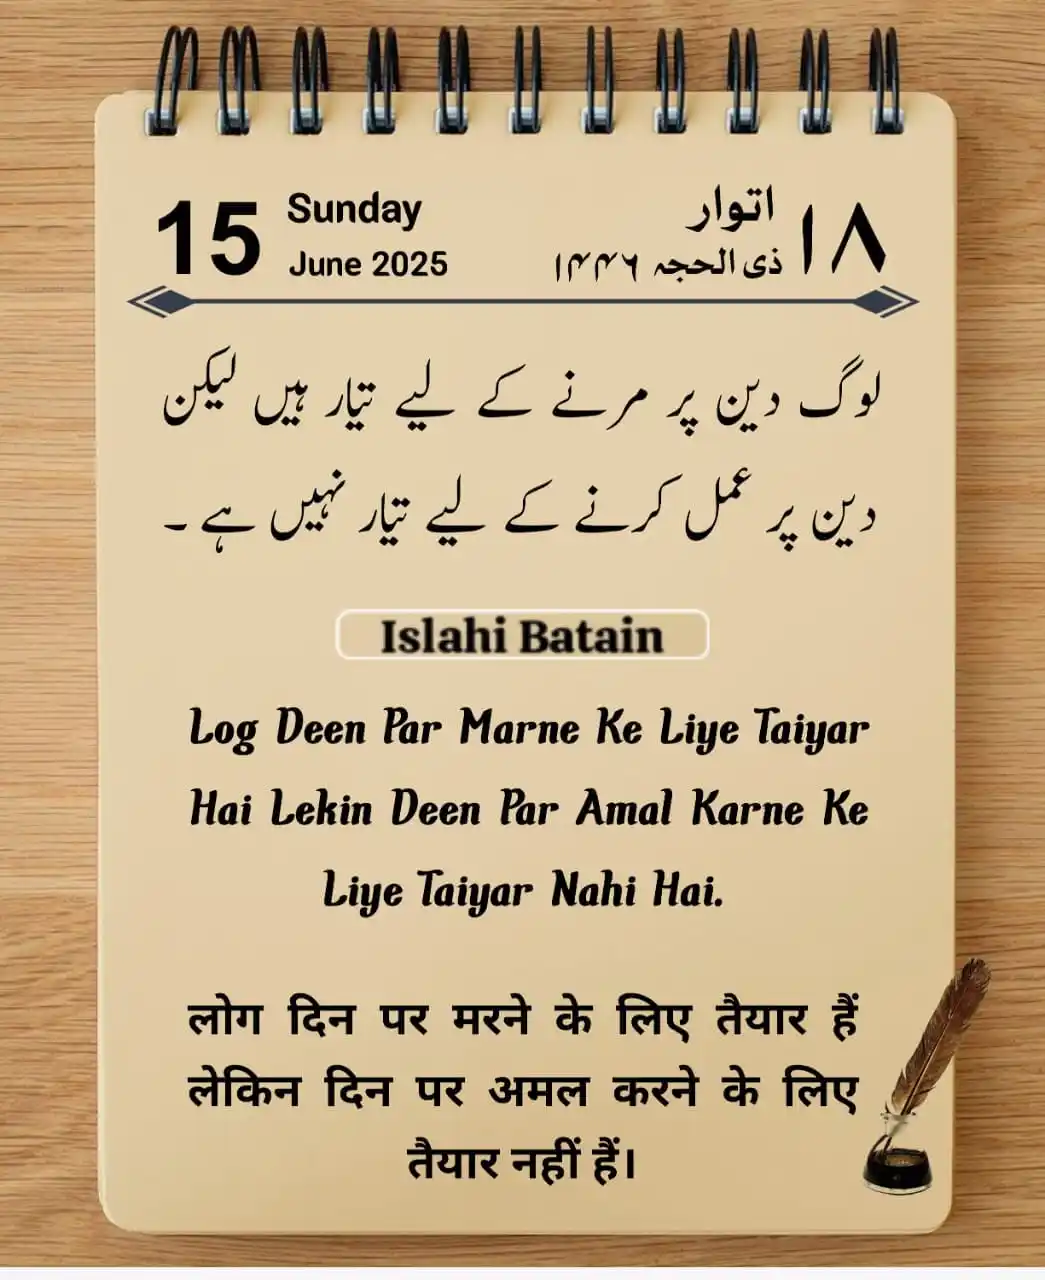 15 Sunday اتوار ۱۸
June 2025 ذی الحجہ ۱۴۴۶
لوگ دین پر مرنے کے لیے تیار ہیں لیکن
دین پر عمل کرنے کے لیے تیار نہیں ہے ۔
Islahi Batain
Log Deen Par Marne Ke Liye Taiyar
Hai Lekin Deen Par Amal Karne Ke
Liye Taiyar Nahi Hai.
लोग दिन पर मरने के लिए तैयार हैं
लेकिन दिन पर अमल करने के लिए
तैयार नहीं हैं।